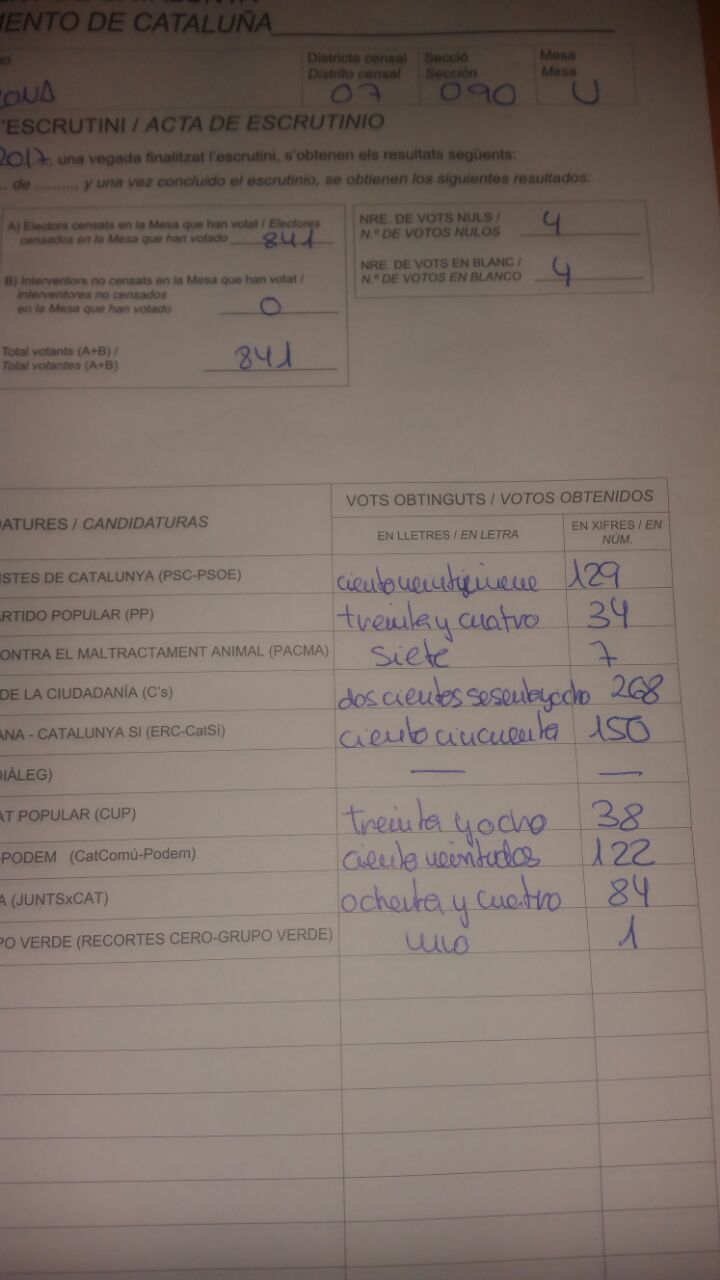 MENTO DE CATALUÑA
Districte censal Secció Mesa
Distrito censal Sección Mesa
07 090 U
'ESCRUTINI / ACTA DE ESCRUTINIO
2017, una vegada finalitzat l'escrutini, s'obtenen els resultats següents:
de .......... y una vez concluido el escrutinio, se obtienen los siguientes resultados:
A) Electors censats en la Mesa que han votat / Electores
censados en la Mesa que han votado 841
NRE. DE VOTS NULS /
N.º DE VOTOS NULOS 4
B) Interventors no censats en la Mesa que han votat /
Interventores no censados
en la Mesa que han votado 0
NRE. DE VOTS EN BLANC /
N.º DE VOTOS EN BLANCO 4
Total votants (A+B) /
Total votantes (A+B) 841
DATURES / CANDIDATURAS
VOTS OBTINGUTS / VOTOS OBTENIDOS
EN LLETRES / EN LETRA
EN XIFRES / EN
NÚM.
ISTES DE CATALUNYA (PSC-PSOE) ciento veintinueve 129
ARTIDO POPULAR (PP) treinta y cuatro 34
CONTRA EL MALTRACTAMENT ANIMAL (PACMA) siete 7
DE LA CIUDADANÍA (C's) doscientos sesenta y ocho 268
ANA - CATALUNYA SI (ERC-CatSí) ciento cincuenta 150
DIÀLEG) — —
AT POPULAR (CUP) treinta y ocho 38
PODEM (CatComú-Podem) ciento veintidos 122
A (JUNTSxCAT) ochenta y cuatro 84
PO VERDE (RECORTES CERO-GRUPO VERDE) uno 1